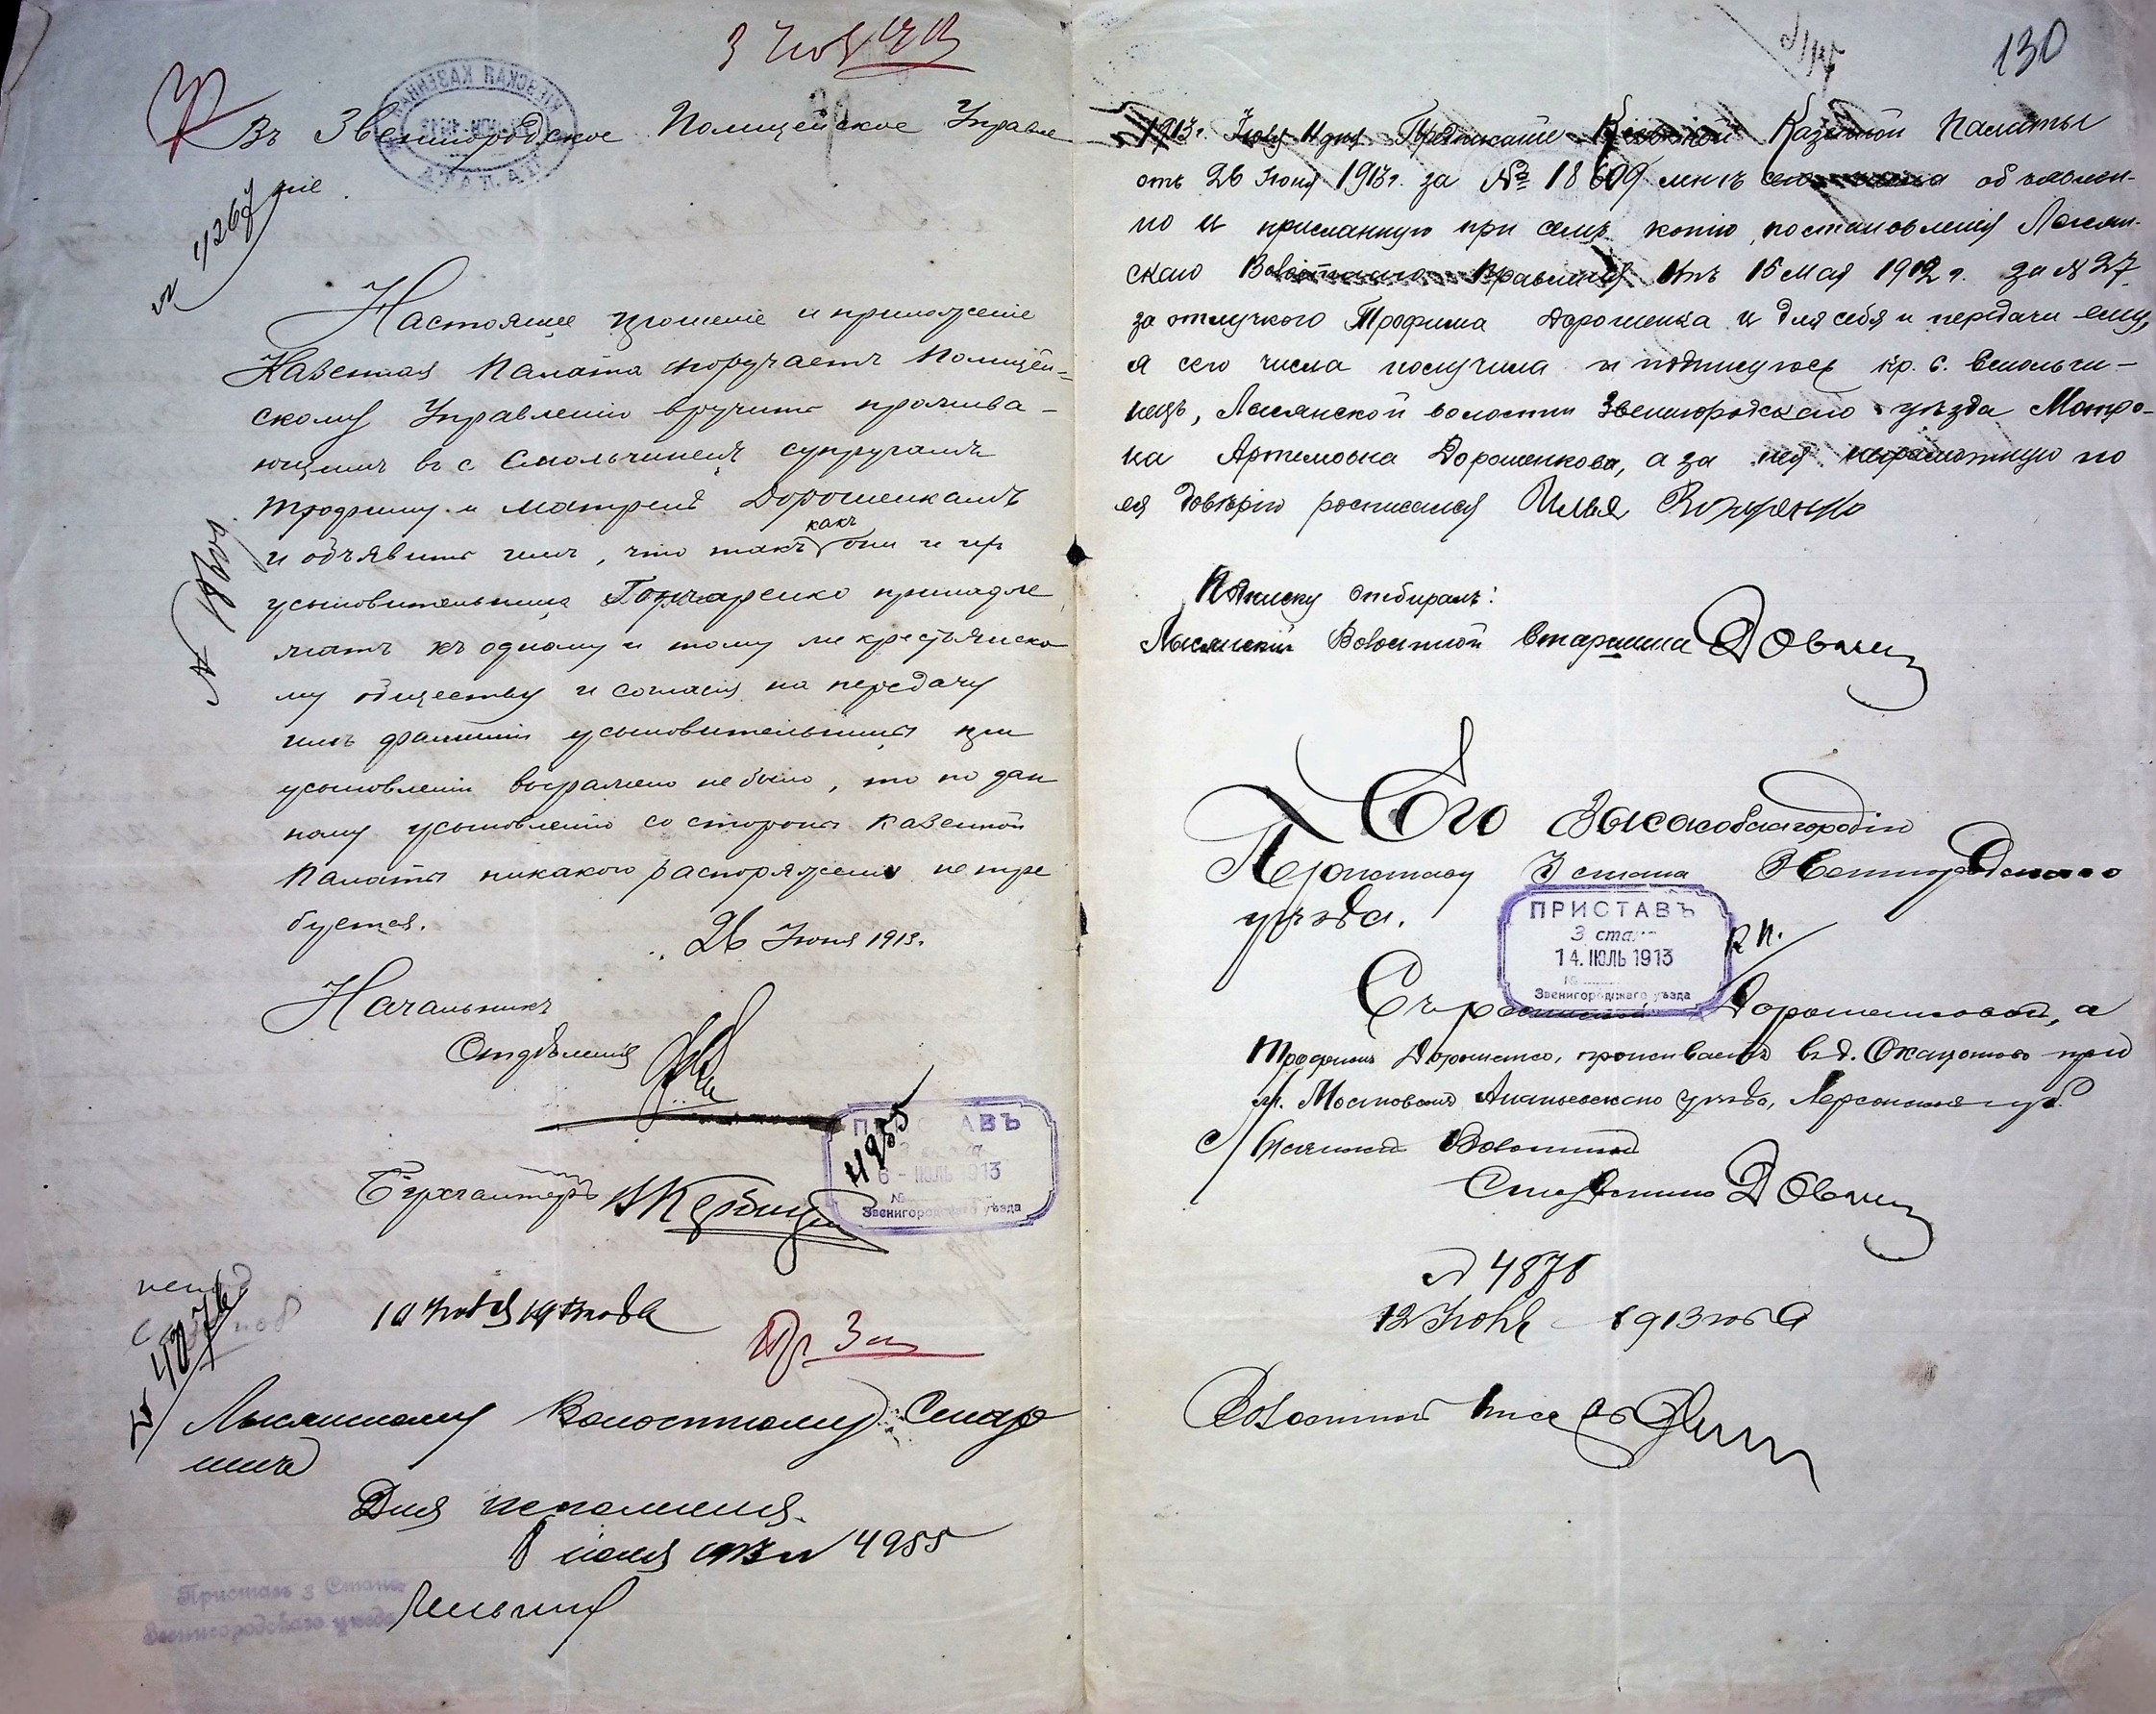 3 Іюля 1913
Въ Звенигородское Полицейское Управле
ніе.
Настоящее прошеніе и приложеніе
Казенная Палата поручаетъ Полицей-
скому Управленію вручить прожива-
ющимъ въ с. Смольчинецъ супругамъ
Трофиму и Матренѣ Дорошенкамъ
и объявить имъ, что такъ какъ они и ихъ
усыновительница Гончаренко принадле
жатъ къ одному и тому же крестьянско
му обществу и согласія на передачу
имъ фамиліи усыновительницы при
усыновленіи выражено не было, то по дан
ному усыновленію со стороны Казенной
Палаты никакого распоряженія не тре
буется.
26 Іюня 1913.
Начальникъ
Отдѣленія
ПРИСТАВЪ
6 - ІЮЛЬ 1913
Звенигородскаго уѣзда
4955
Бухгалтеръ
10 Іюля 1913 года
Пр 3 ст
Лысянскому Волостному Старши
нѣ
Для исполненія.
8 іюля 1913 N 4955
Приставъ 3 Стана
Звенигородскаго уѣзда
130
1913 г. Іюля 11 дня Предписаніе Кіевской Казенной Палаты
отъ 26 Іюня 1913 г. за № 18609 мнѣ объявлен-
но и присланную при семъ копію постановленія Лысян-
скаго Волостнаго Правленія отъ 15 мая 1912 г. за N 27
за отлучкою Трофима Дорошенка и для себя и передачи ему,
я сего числа получила и подписуюсь кр. с. Смольчи-
нецъ, Лысянской волости Звенигородскаго уѣзда Матро-
на Артемовна Дорошенкова, а за нея неграмотную по
ея довѣрію росписался Илья
Подписку отбиралъ:
Лысянскій Волостной Старшина
Его Высокоблагородію
Приставу 3 стана Звенигородскаго
уѣзда.
ПРИСТАВЪ
3 ста
14. ІЮЛЬ 1913
Звенигородскаго уѣзда
Съ роспиской Дорошенковой, а
Трофимъ Дорошенко, проживаетъ въ д. при
м. Мостовомъ Ананьевскаго уѣзда, Херсонской губ.
Волостной
Старшина
N 4878
12 Іюля 1913 года
Волостной Писарь